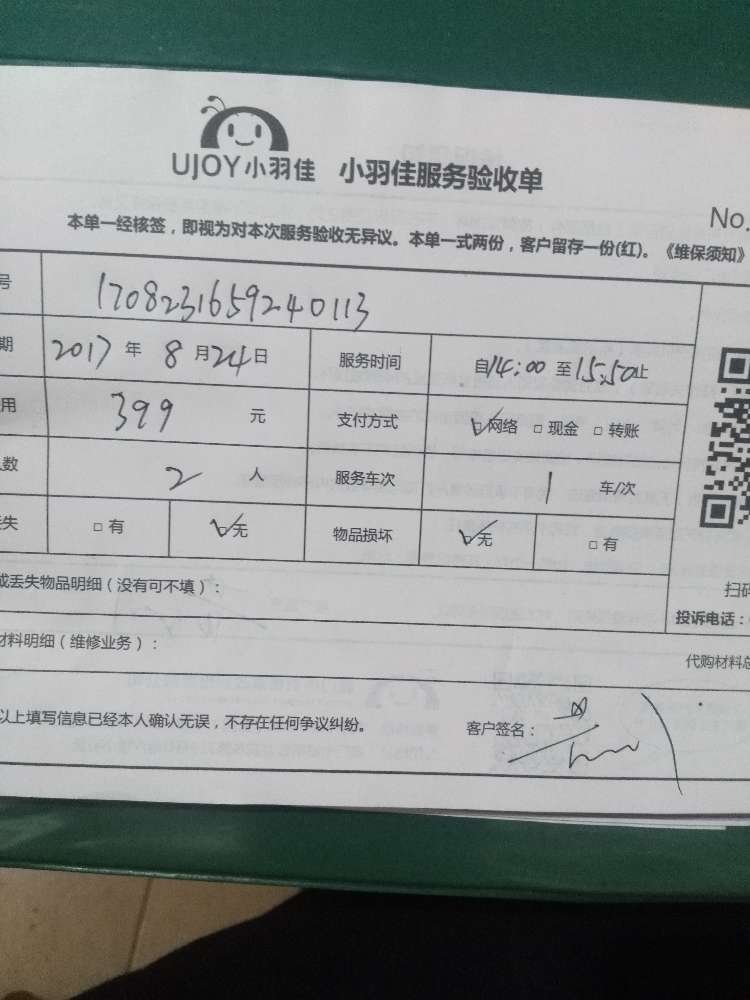 UJOY小羽佳 小羽佳服务验收单
No.
本单一经核签，即视为对本次服务验收无异议。本单一式两份，客户留存一份(红)。《维保须知》
号 1708231659240113
期 2017 年 8 月 24 日 服务时间 自14:00 至15:50止
用 399 元 支付方式 ☑网络 □ 现金 □ 转账
人数 2 人 服务车次 1 车/次
丢失 □ 有 ☑无 物品损坏 ☑无 □ 有
扫码
或丢失物品明细（没有可不填）：
投诉电话：
材料明细（维修业务）：
代购材料总
以上填写信息已经本人确认无误，不存在任何争议纠纷。 客户签名：